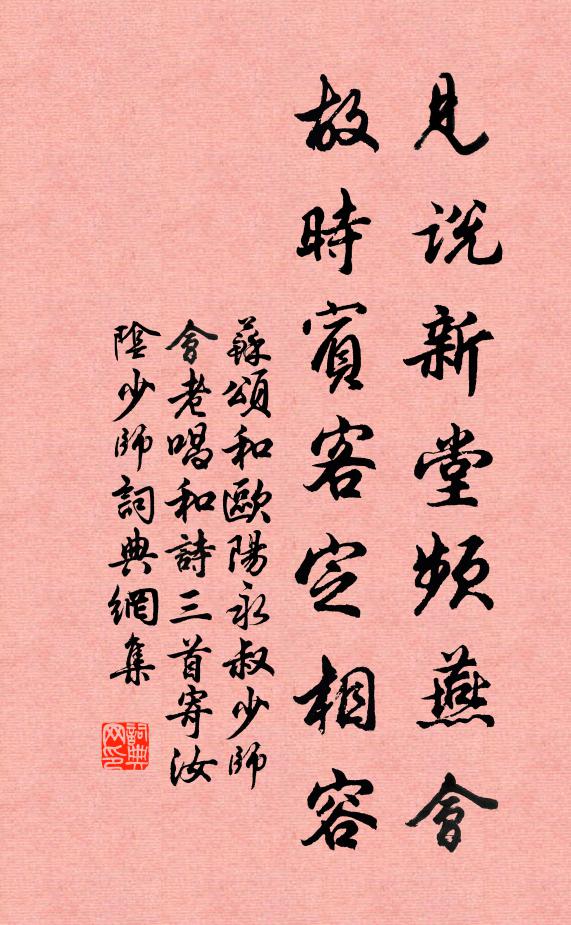 見説新堂頻燕會
故時賓客定相容
蘇頌和歐陽永叔少師
會老唱和詩三首寄汝
陰少師詞典網集
詞典網印